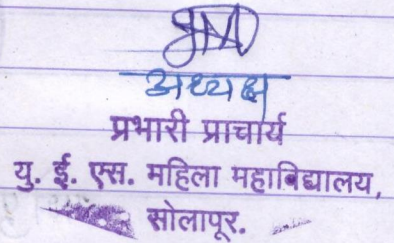 अध्यक्ष
प्रभारी प्राचार्य
यु. ई. एस. महिला महाविद्यालय,
सोलापूर.